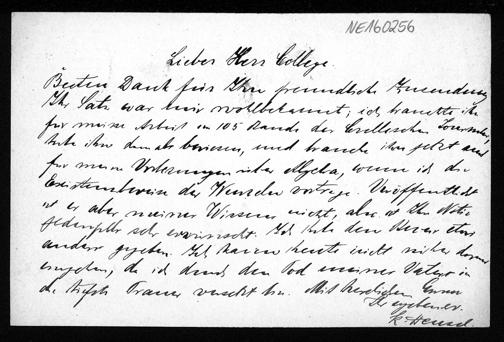 NE160256
Lieber Herr College.
Besten Dank für Ihre freundliche Zusendung
Ihr Satz war mir wohlbekannt; ich brauchte ihn
für meine Arbeit im 105 Bande des Crelleschen Journales,
habe ihn damals bewiesen, und brauche ihn jetzt auch
für meine Vorlesungen über Algebra, wenn ich die
Existenzbeweise der Wurzeln vortrage. Veröffentlicht
ist er aber meines Wissens nicht, also ist Ihre Notiz
jedenfalls sehr erwünscht. Ich habe den Beweis etwas
anders gegeben. Ich kann heute nicht näher darauf
eingehen, da ich durch den Tod meines Vaters in
die tiefste Trauer versetzt bin. Mit herzlichem Gruss
Ihr ergebener
K. Hensel.